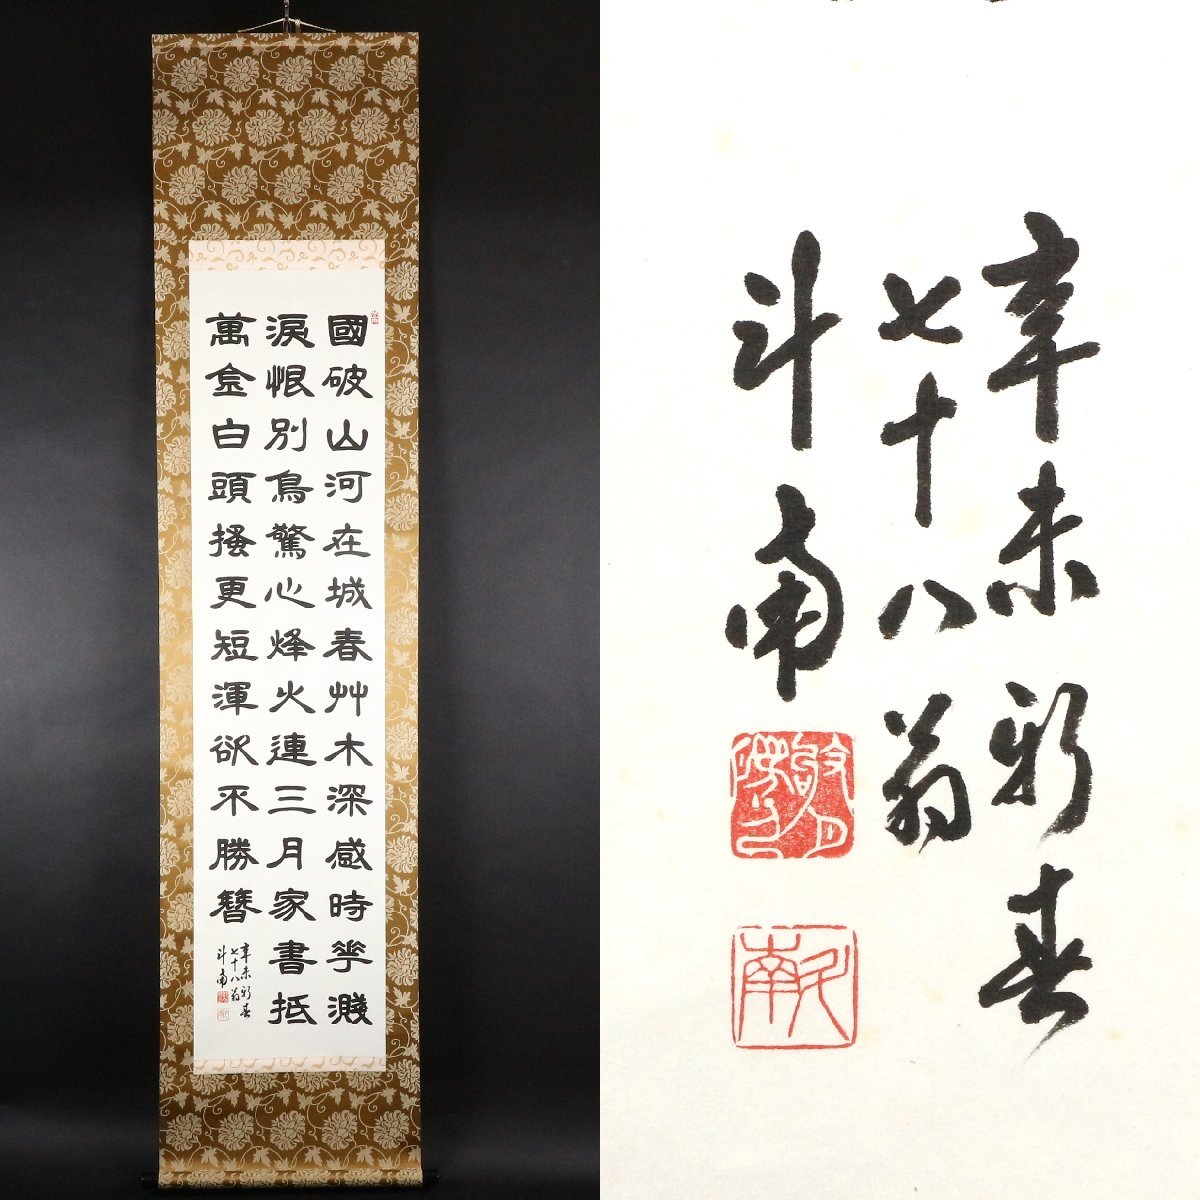 國破山河在城春艸木深感時花濺
淚恨別鳥驚心烽火連三月家書抵
萬金白頭搔更短渾欲不勝簪
辛未新春
七十八翁
斗南
辛未新春
七十八翁
斗南